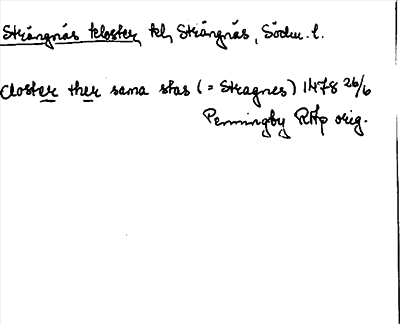 Strängnäs kloster, kl, Strängnäs, Södm. l.
Closter ther sama stas (= Stragnes) 1478 26/6
Penningby RAp orig.